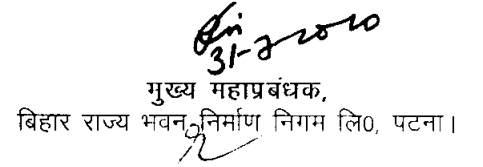 31-7-2020
मुख्य महाप्रबंधक,
बिहार राज्य भवन निर्माण निगम लि0, पटना।